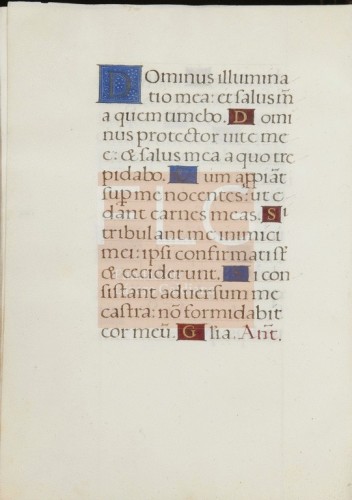 DOminus illumina
tio mea: et salus m̄
a quem timebo. Domi
nus protector uite me
e: & salus mea a quo tre
pidabo. Dum appiāt
sup me nocentes: ut e
dant carnes meas. Si
tribulant me inimici
mei: ipsi confirmati st̄
& ceciderunt. Si con
sistant aduersum me
castra: nō formidabit
cor meū. Glia. Ant̄.